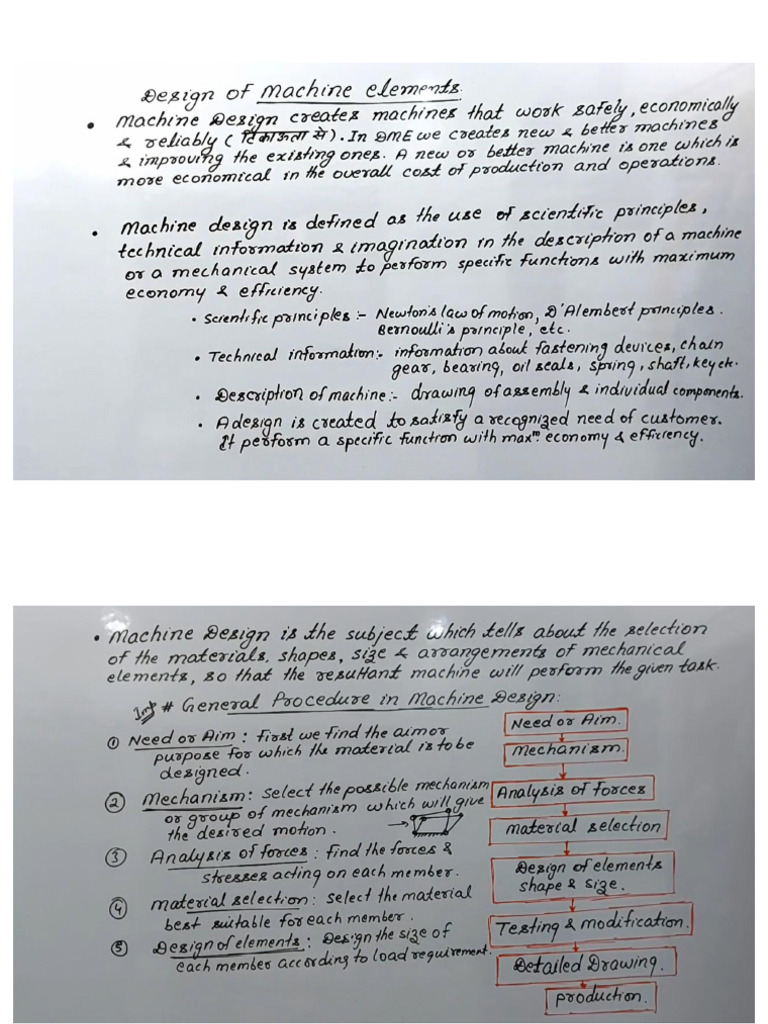 Design of Machine elements.
• Machine Design creates machines that work safely, economically
& reliably (टिकाऊता से). In DME we creates new & better machines
& improving the existing ones. A new or better machine is one which is
more economical in the overall cost of production and operations.
• Machine design is defined as the use of scientific principles,
technical information & imagination in the description of a machine
or a mechanical system to perform specific functions with maximum
economy & efficiency.
• Scientific principles :- Newton's law of motion, D'Alembert principles.
Bernoulli's principle, etc.
• Technical information:- information about fastening devices, chain
gear, bearing, oil seals, spring, shaft, key etc.
• Description of machine:- drawing of assembly & individual components.
• A design is created to satisfy a recognized need of customer.
It perform a specific function with maxm economy & efficiency.
• Machine Design is the subject which tells about the selection
of the materials, shapes, size & arrangements of mechanical
elements, so that the resultant machine will perform the given task.
Imp # General Procedure in Machine Design:
① Need or Aim : first we find the aim or
purpose for which the material is to be
designed.
② Mechanism: select the possible mechanism
or group of mechanism which will give
the desired motion.
③ Analysis of forces : find the forces &
stresses acting on each member.
④ material selection: select the material
best suitable for each member.
⑤ Design of elements : Design the size of
each member according to load requirement.
Need or Aim.
Mechanism.
Analysis of forces
material selection
Design of elements
shape & size.
Testing & modification.
Detailed Drawing.
production.